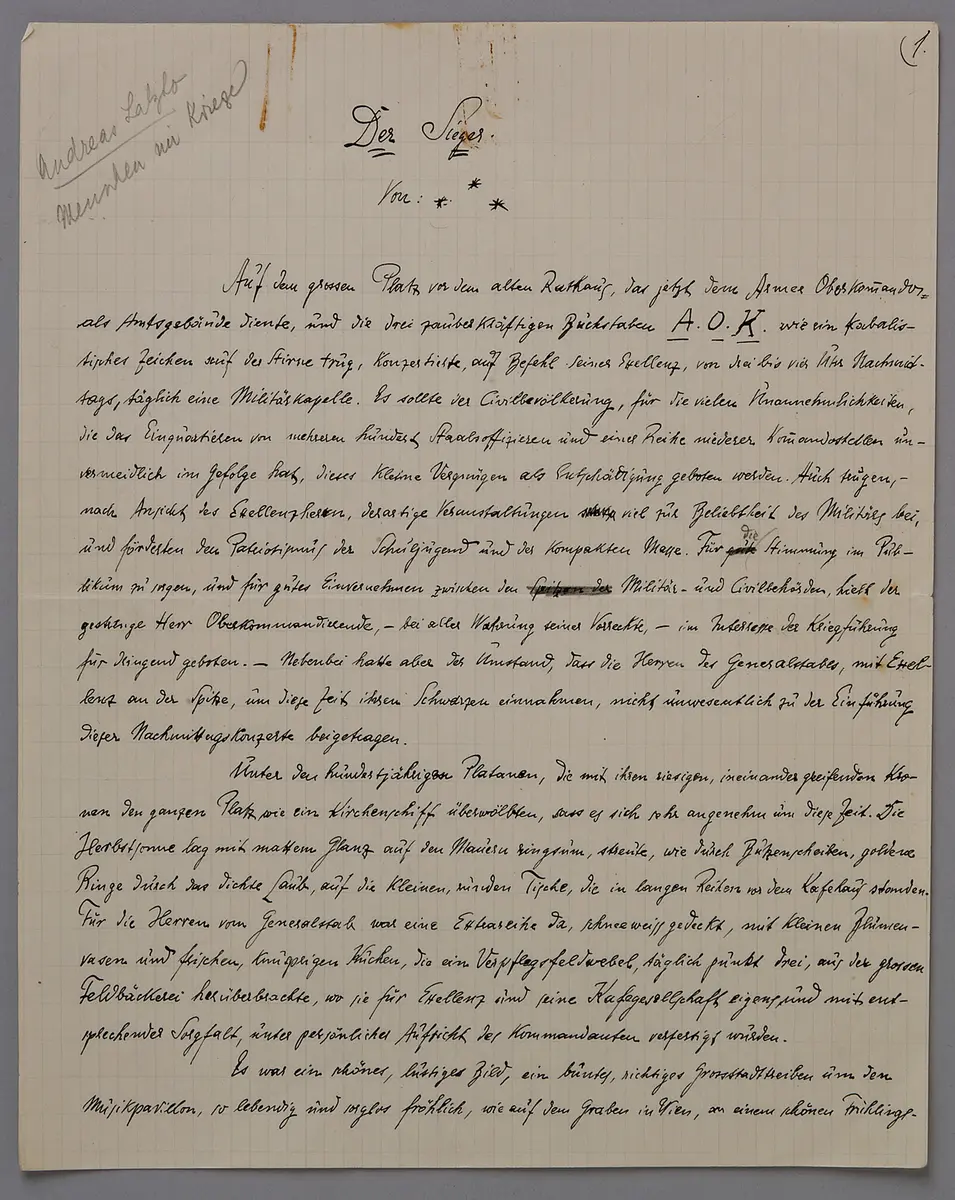 (1.
Andreas Latzko
Menschen im Kriege
Der Sieger.
Von: * * *
Auf dem grossen Platz vor dem alten Rathaus, das jetzt dem Armee Oberkommando
als Amtsgebäude diente, und die drei zauberkräftigen Buchstaben A.O.K. wie ein kabalis-
tisches Zeichen auf der Stirne trug, konzertierte, auf Befehl seiner Exellenz, von drei bis vier Uhr Nachmit-
tags, täglich eine Militärkapelle. Es sollte der Civilbevölkerung, für die vielen Unannehmlichkeiten,
die das Einquartieren von mehreren hundert Staabsoffizieren und einer Reihe niederer Komandostellen un-
vermeidlich im Gefolge hat, dieses kleine Vergnügen als Entschädigung geboten werden. Auch trugen, -
nach Ansicht des Exellenzherrn, derartige Veranstaltungen viel zur Beliebtheit des Militärs bei,
und förderten den Patriotismus der Schuljugend und der kompakten Masse. Für gute die Stimmung im Pub-
likum zu sorgen, und für gutes Einvernehmen zwischen den Spitzen der Militär- und Civilbehörden, hielt der
gestrenge Herr Oberkommandierende, - bei aller Wahrung seiner Vorrechte, - im Interesse der Kriegführung
für dringend geboten. - Nebenbei hatte aber der Umstand, dass die Herren des Generalstabes, mit Exel-
lenz an der Spitze, um diese Zeit ihren Schwarzen einnahmen, nicht unwesentlich zu der Einführung
dieser Nachmittagskonzerte beigetragen.
Unter den hundertjährigen Platanen, die mit ihren riesigen, ineinander greifenden Kro-
nen den ganzen Platz wie ein Kirchenschiff überwölbten, sass es sich sehr angenehm um diese Zeit. Die
Herbstsonne lag mit mattem Glanz auf den Mauern ringsum, streute, wie durch Butzenscheiben, goldene
Ringe durch das dichte Laub, auf die kleinen, runden Tische, die in langen Reihen vor dem Kafehaus standen.
Für die Herren vom Generalstab war eine Extrareihe da, schneeweiss gedeckt, mit kleinen Blumen-
vasen und frischen, knusprigen Kuchen, die ein Verpflegsfeldwebel, täglich punkt drei, aus der grossen
Feldbäckerei herüberbrachte, wo sie für Exellenz und seine Kafegesellschaft eigens und mit ent-
sprechender Sorgfalt, unter persönlicher Aufsicht des Kommandanten verfertigt wurden.
Es war ein schönes, lustiges Bild, ein buntes, richtiges Grosstadttreiben um den
Musikpavillon, so lebendig und sorglos fröhlich, wie auf dem Graben in Wien, an einem schönen Frühlings-